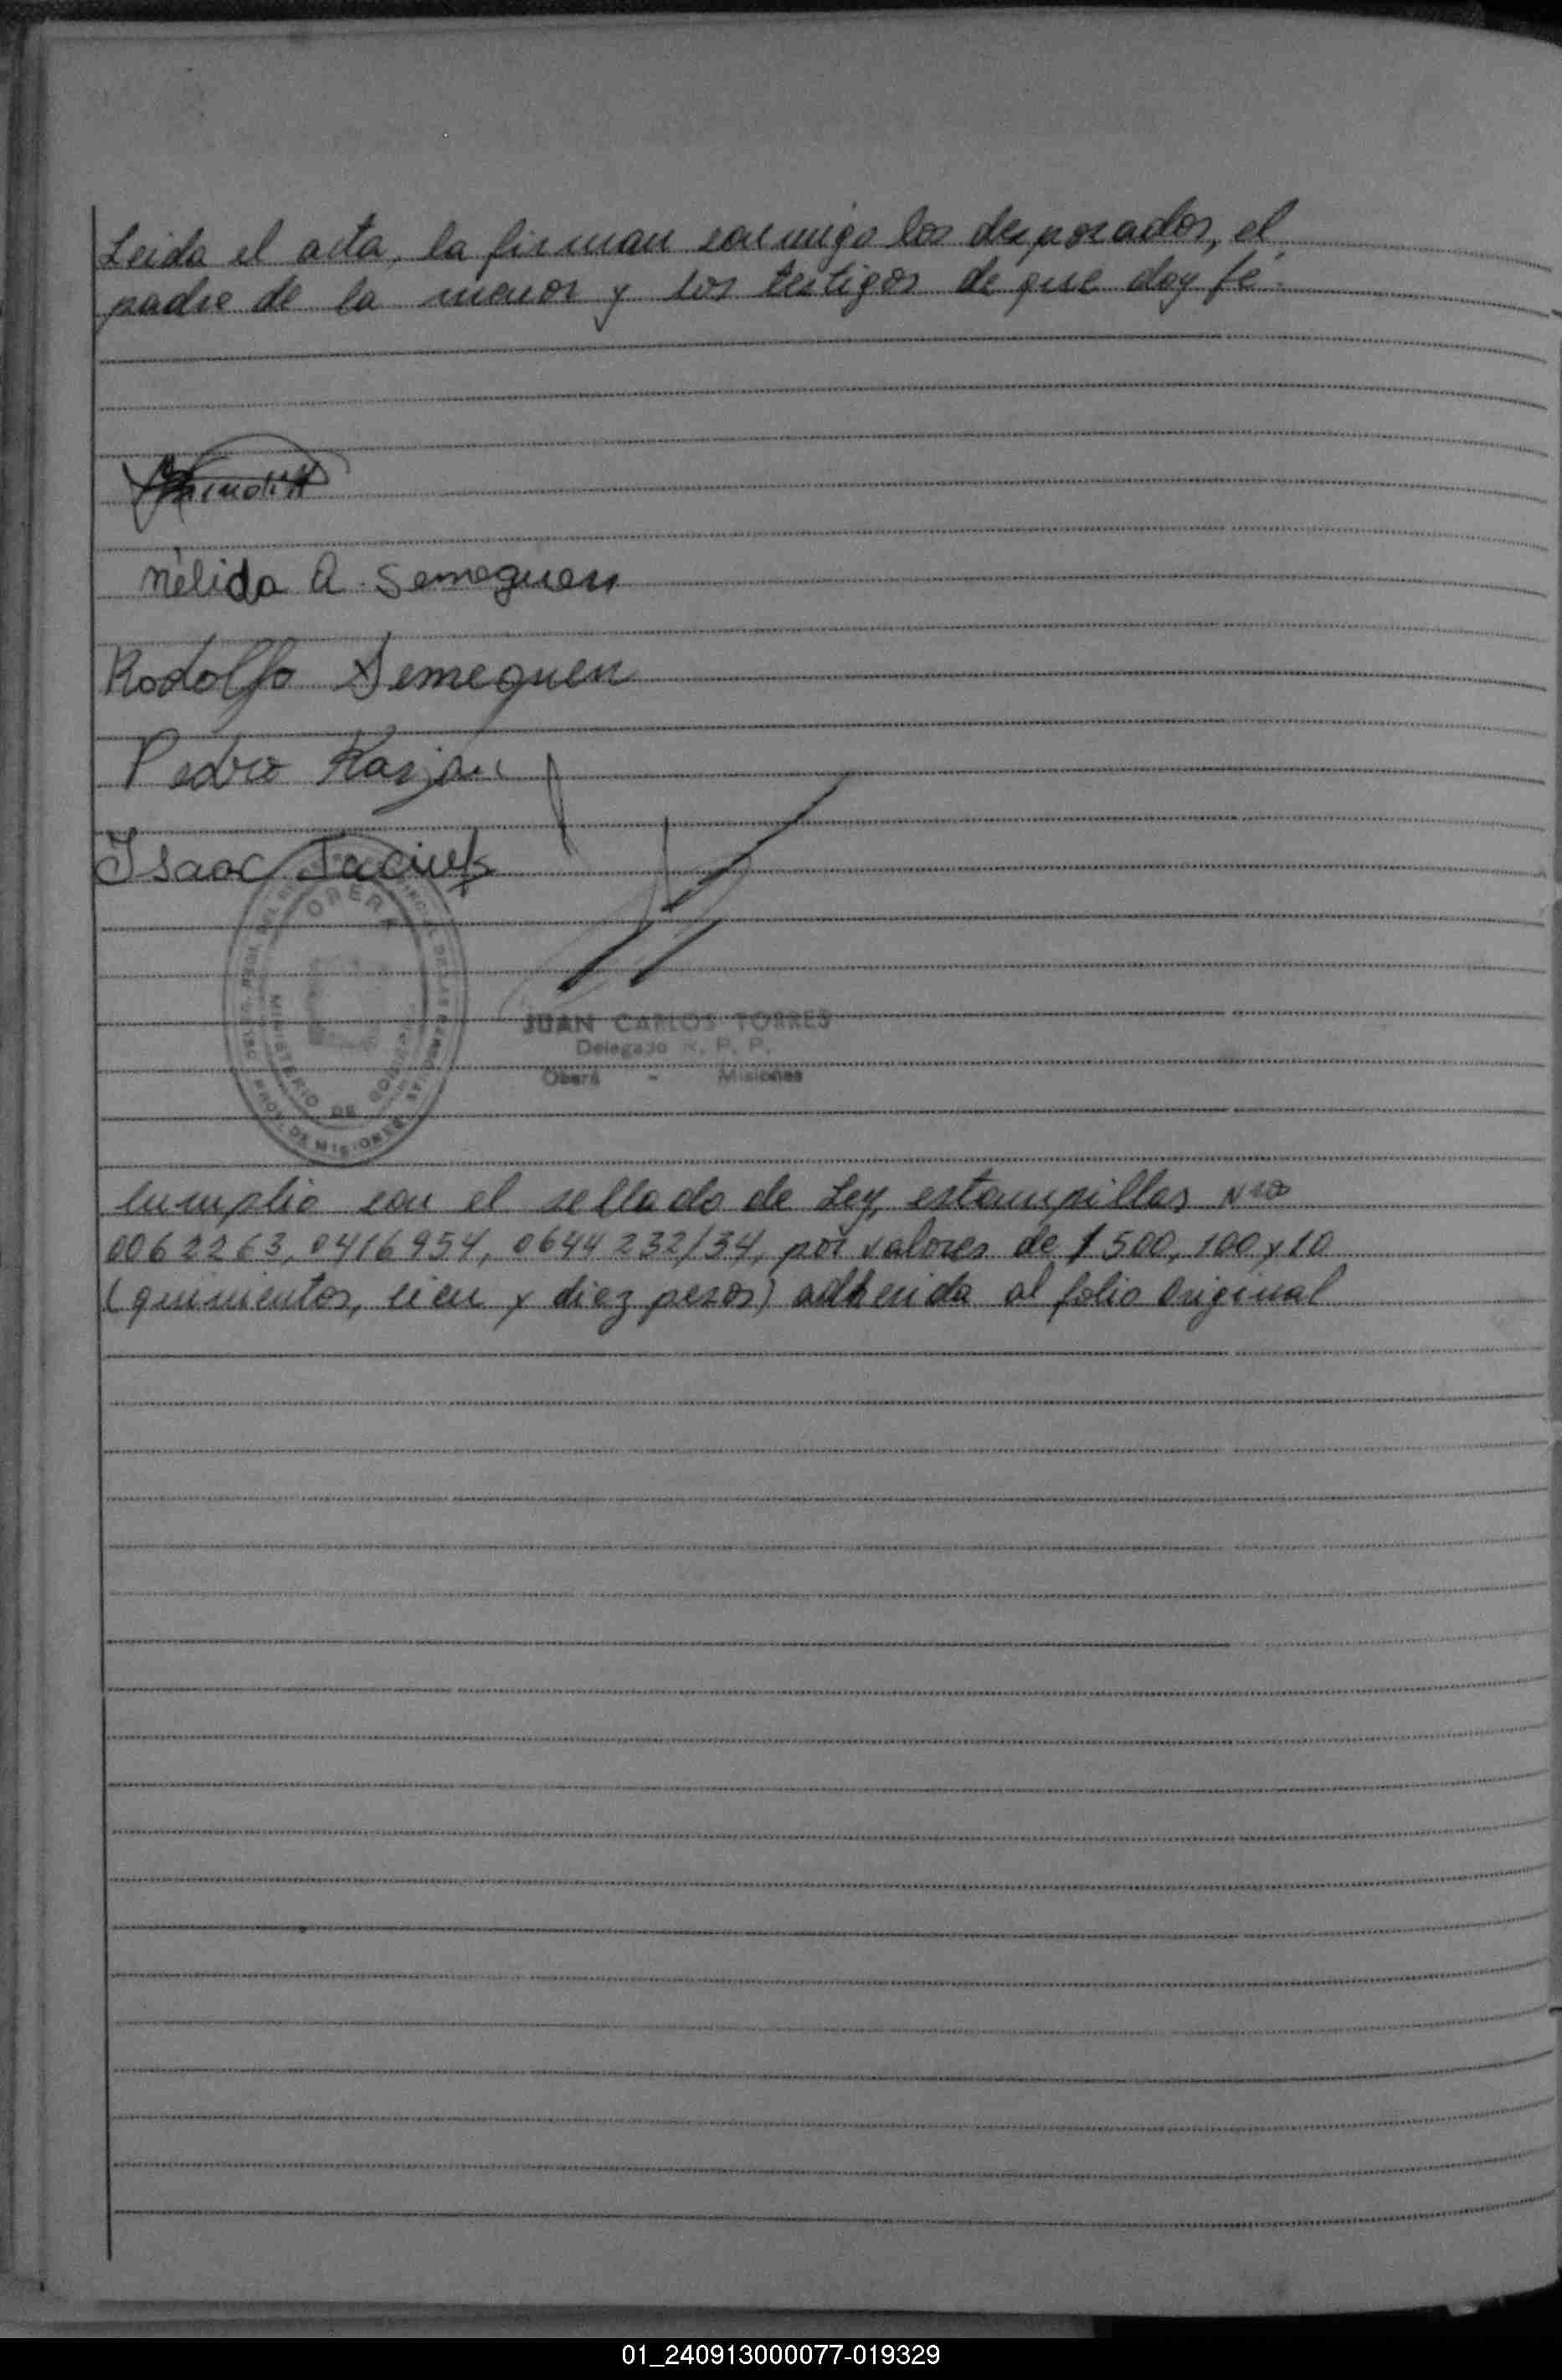 Leida el acta, la firman conmigo los desposados, el
padre de la menor y los testigos de que doy fe.
Nélida A. Semeguen
Rodolfo Semeguen
Pedro
Isaac
OBERA
MINISTERIO DE
PROV. DE MISIONES
JUAN CARLOS TORRES
Delegado R. P. P.
Oberá - Misiones
Cumplio con el sellado de Ley, estampillas Nro
0062263, 0416954, 0644232/34, por valores de $ 500, 100 y 10
(quinientos, cien y diez pesos) adherida al folio Original
01_240913000077-019329